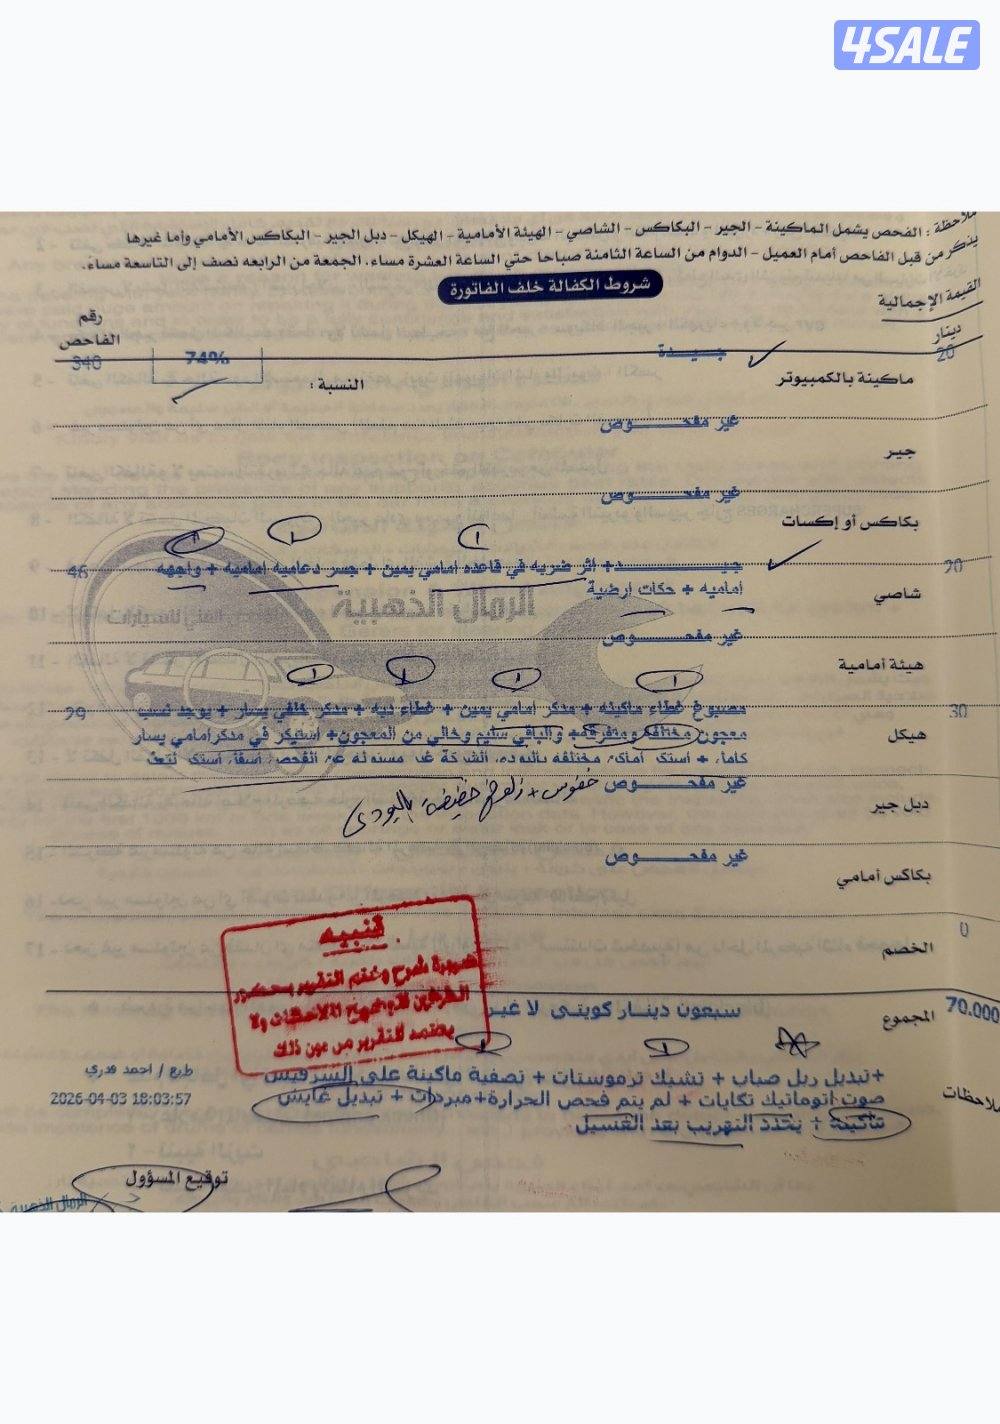 4SALE
ملاحظة : الفحص يشمل الماكينة - الجير - البكاكس - الشاصي - الهيئة الأمامية - الهيكل - دبل الجير - البكاكس الأمامي وأما غيرها
يذكر من قبل الفاحص أمام العميل - الدوام من الساعة الثامنة صباحا حتي الساعة العشرة مساء، الجمعة من الرابعه نصف إلى التاسعة مساءً.
شروط الكفالة خلف الفاتورة
القيمة الإجمالية
دينار
رقم الفاحص
20
ماكينة بالكمبيوتر
جـــيـــدة
النسبة :
74%
340
جير
غير مفحـــــوص
بكاكس أو إكسات
غير مفحـــــوص
20
شاصي
جيـــــــد+ اثر ضربه في قاعده امامي يمين + جسر دعاميه اماميه + واجهه
46
اماميه + حكات ارضية
الرمال الذهبية
هيئة أمامية
غير مفحـــــوص
30
هيكل
مصبوغ غطاء ماكينه + مدكر امامي يمين + غطاء دبه + مدكر خلفي يسار + يوجد نسب
99
معجون مختلفه ومتفرقه+ والباقي سليم وخالي من المعجون+ أستيكر في مدكرامامي يسار
دبل جير
غير مفحـــــوص
بالبودي
بكاكس أمامي
غير مفحـــــوص
الخصم
0
المجموع
70.000
سبعون دينـار كويتى لا غير
تنبيه
ضرورة شرح وختم التقرير بحضور
الطرفين لتوضيح الملاحظات ولا
يعتمد التقرير من دون ذلك
ملاحظات
+تبديل ربل صباب + تشيك ترموستات + تصفية ماكينة على السرفيس
صوت اتوماتيك تكايات + لم يتم فحص الحرارة+مبردات + تبديل قايش
ماكينة + يحدد التهريب بعد الغسيل
طبع / احمد قدري
2026-04-03 18:03:57
توقيع المسؤول
الرمال الذهبية